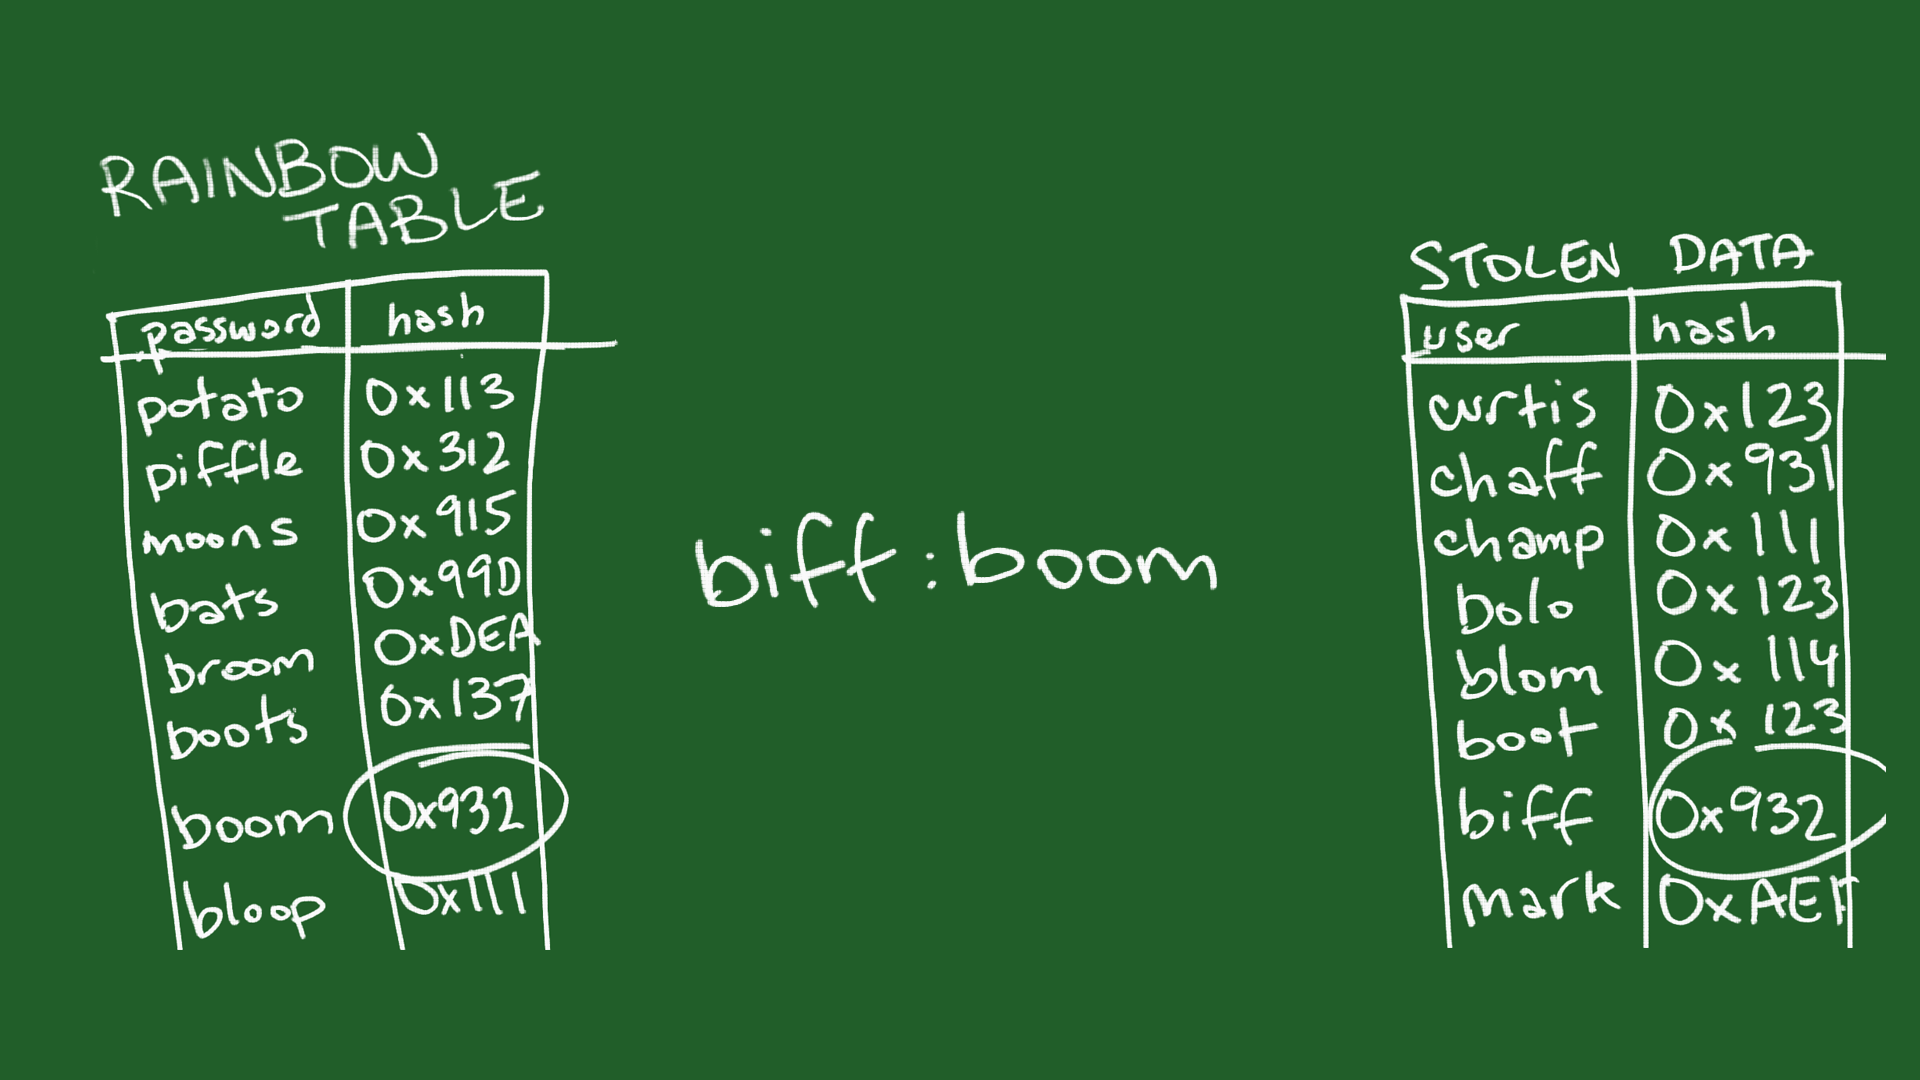 RAINBOW
TABLE
password hash
potato 0x113
piffle 0x312
moons 0x915
bats 0x99D
broom 0xDEA
boots 0x137
boom 0x932
bloop 0x111
biff:boom
STOLEN DATA
user hash
curtis 0x123
chaff 0x931
champ 0x111
bolo 0x123
blom 0x114
boot 0x123
biff 0x932
mark 0xAEF